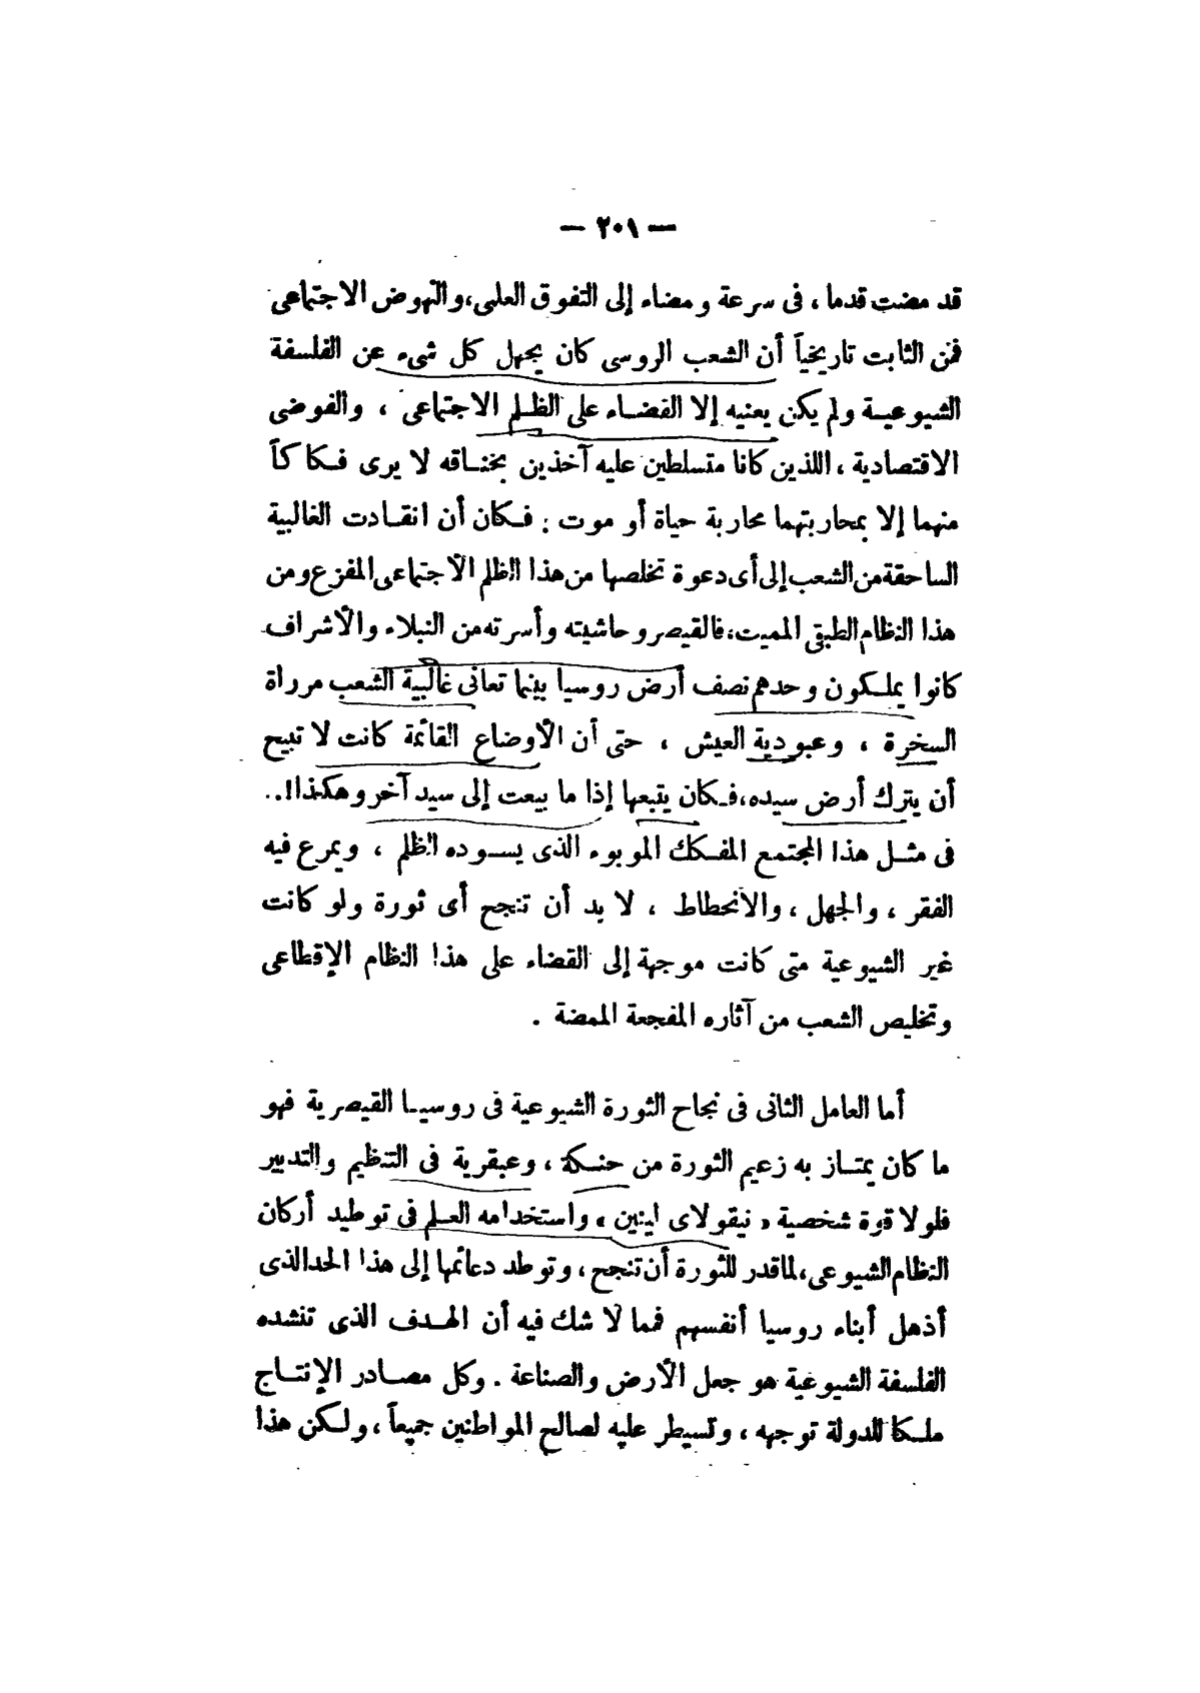 — ٢٠١ —
قد مضت قدما ، فى سرعة ومضاء إلى التفوق العلمى، والنهوض الاجتماعى
فمن الثابت تاريخياً أن الشعب الروسى كان يجهل كل شىء عن الفلسفة
الشيوعية ولم يكن يعنيه إلا القضاء على الظلم الاجتماعى ، والفوضى
الاقتصادية ، اللذين كانا متسلطين عليه آخذين بخناقه لا يرى فكاكاً
منهما إلا بمحاربتهما محاربة حياة أو موت : فكان أن انقادت الغالبية
الساحقة من الشعب إلى أى دعوة تخلصها من هذا الظلم الاجتماعى المفزع ومن
هذا النظام الطبقى المميت، فالقيصر وحاشيته وأسرته من النبلاء والأشراف
كانوا يملكون وحدهم نصف أرض روسيا بينما تعانى غالبية الشعب مرراة
السخرة ، وعبودية العيش ، حتى أن الأوضاع القائمة كانت لا تبيح
أن يترك أرض سيده، فكان يتبعها إذا ما بيعت إلى سيد آخر وهكذا!..
فى مثل هذا المجتمع المفكك الموبوء الذى يسوده الظلم ، ويمرع فيه
الفقر ، والجهل ، والانحطاط ، لا بد أن تنجح أى ثورة ولو كانت
غير الشيوعية متى كانت موجهة إلى القضاء على هذا النظام الإقطاعى
وتخليص الشعب من آثاره المفجعة الممضة .
أما العامل الثانى فى نجاح الثورة الشيوعية فى روسيا القيصرية فهو
ما كان يمتاز به زعيم الثورة من حنكة ، وعبقرية فى التنظيم والتدبير
فلولا قوة شخصية « نيقولاى لينين » واستخدامه العلم فى توطيد أركان
النظام الشيوعى، لما قدر للثورة أن تنجح ، وتوطد دعائمها إلى هذا الحد الذى
أذهل أبناء روسيا أنفسهم فمما لا شك فيه أن الهدف الذى تنشده
الفلسفة الشيوعية هو جعل الأرض والصناعة . وكل مصادر الإنتاج
ملكا للدولة توجهه ، وتسيطر عليه لصالح المواطنين جميعاً ، ولكن هذا